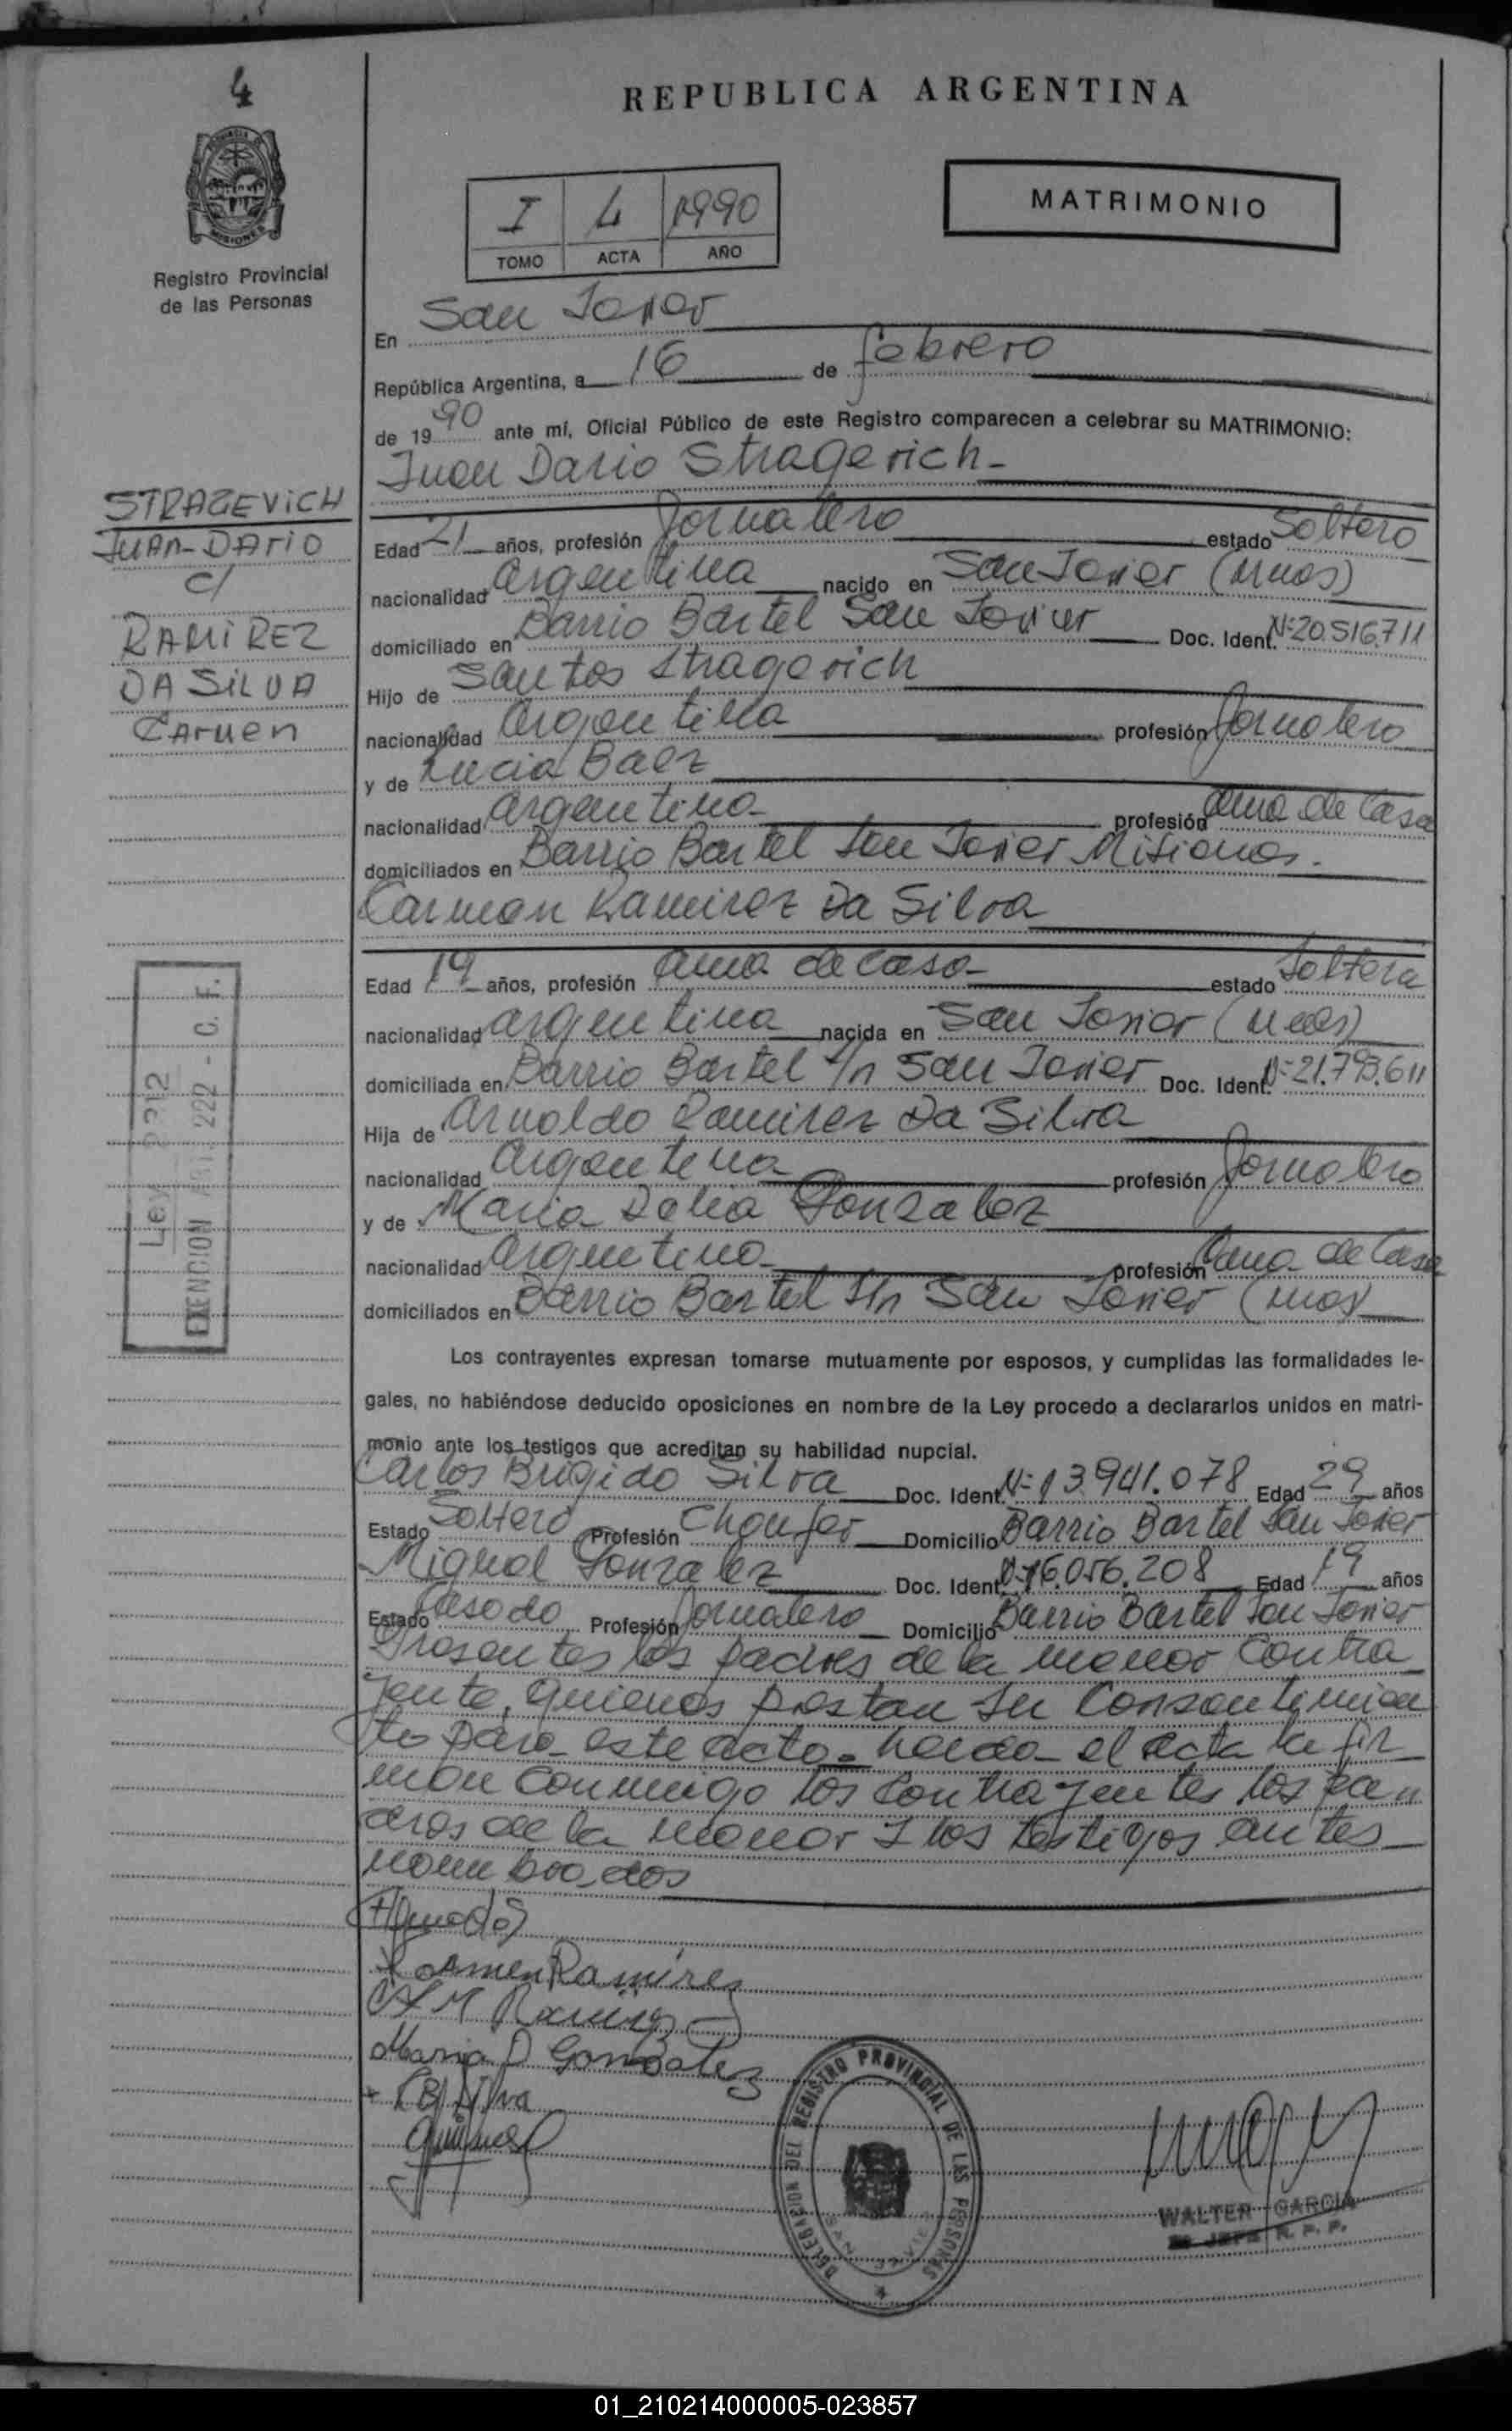 4
REPUBLICA ARGENTINA
MISIONES
Registro Provincial
de las Personas
I 4 1990
TOMO ACTA AÑO
MATRIMONIO
En San Javier
República Argentina, a 16 de febrero
de 1990 ante mí, Oficial Público de este Registro comparecen a celebrar su MATRIMONIO:
Juan Dario Stragevich
STRAGEVICH
JUAN-DARIO
C/
RAMIREZ
DA SILVA
CARMEN
Edad 21 años, profesión Jornalero estado Soltero
nacionalidad argentina nacido en San Javier (Mnes)
domiciliado en Barrio Bartel San Javier Doc. Ident. Nº 20.516.711
Hijo de Santos Stragevich
nacionalidad argentina profesión Jornalero
y de Lucia Baez
nacionalidad argentina profesión ama de Casa
domiciliados en Barrio Bartel San Javier Misiones.
Carmen Ramirez Da Silva
Edad 19 años, profesión ama de casa estado Soltera
nacionalidad argentina nacida en San Javier (Mnes)
domiciliada en Barrio Bartel S/n San Javier Doc. Ident. Nº 21.793.611
Hija de Arnoldo Ramirez Da Silva
nacionalidad argentina profesión Jornalero
y de Maria Delia Gonzalez
nacionalidad argentina profesión ama de Casa
domiciliados en Barrio Bartel S/n San Javier (Mnes)
Ley 2312
EXENCION ART. 222 - C. F.
Los contrayentes expresan tomarse mutuamente por esposos, y cumplidas las formalidades le-
gales, no habiéndose deducido oposiciones en nombre de la Ley procedo a declararlos unidos en matri-
monio ante los testigos que acreditan su habilidad nupcial.
Carlos Brigido Silva Doc. Ident. Nº 13.941.078 Edad 29 años
Estado Soltero Profesión Choufer Domicilio Barrio Bartel San Javier
Miguel Gonzalez Doc. Ident. Nº 16.056.208 Edad 19 años
Estado Casado Profesión Jornalero Domicilio Barrio Bartel San Javier
Presentes los padres de la menor Contra
yente, quienes prestan su Consentimien
to para este acto. Leida el acta la fir
man Conmigo los Contrayentes los pa
dres de la menor y los testigos antes
nombrados
Carmen Ramirez
Maria D Gonzalez
C B Silva
DELEGACION DEL REGISTRO PROVINCIAL DE LAS PERSONAS
SAN JAVIER
WALTER GARCIA
JEFE R. P. P.
01_210214000005-023857